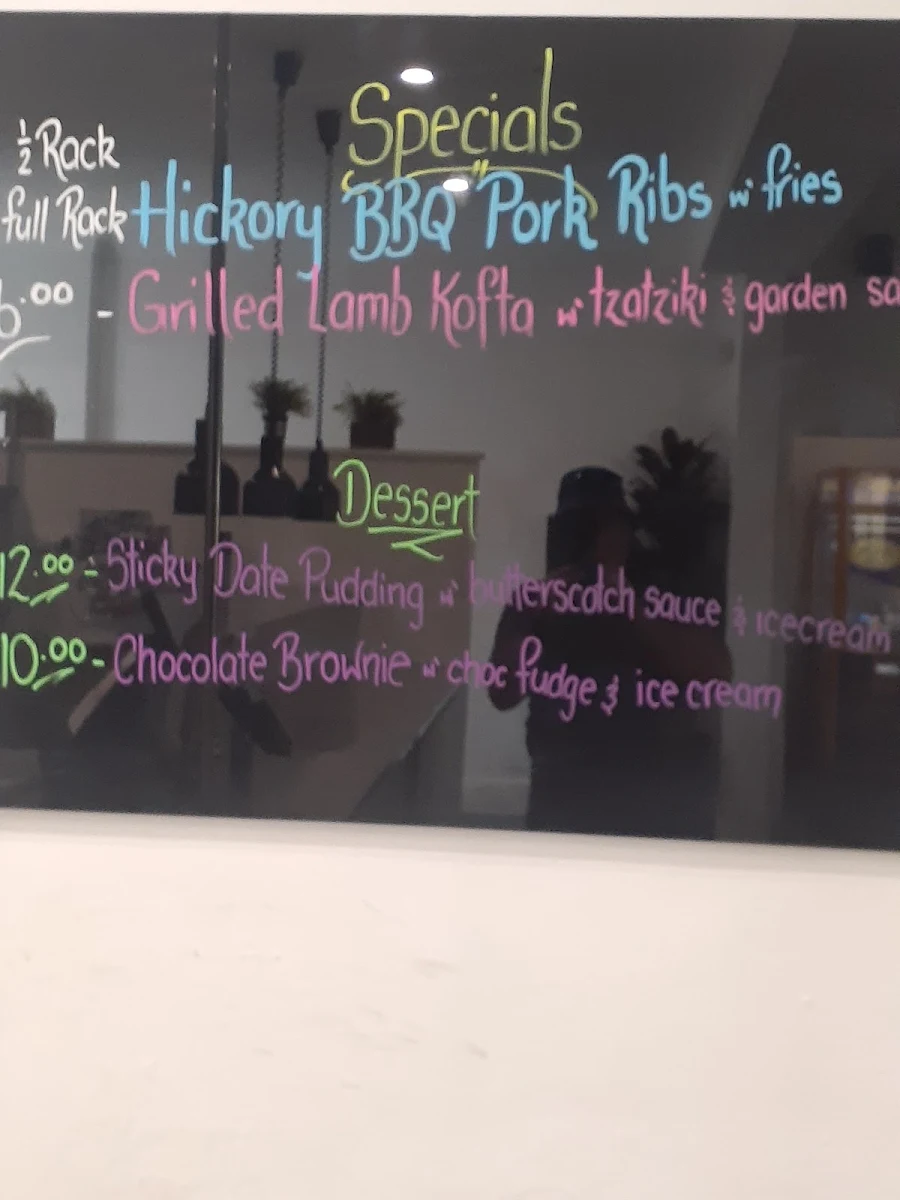 Specials
½ Rack
full Rack Hickory BBQ Pork Ribs w fries
6.00 - Grilled Lamb Kofta w tzatziki & garden sa
Dessert
12.00 - Sticky Date Pudding w butterscotch sauce & icecream
10.00 - Chocolate Brownie w choc fudge & ice cream